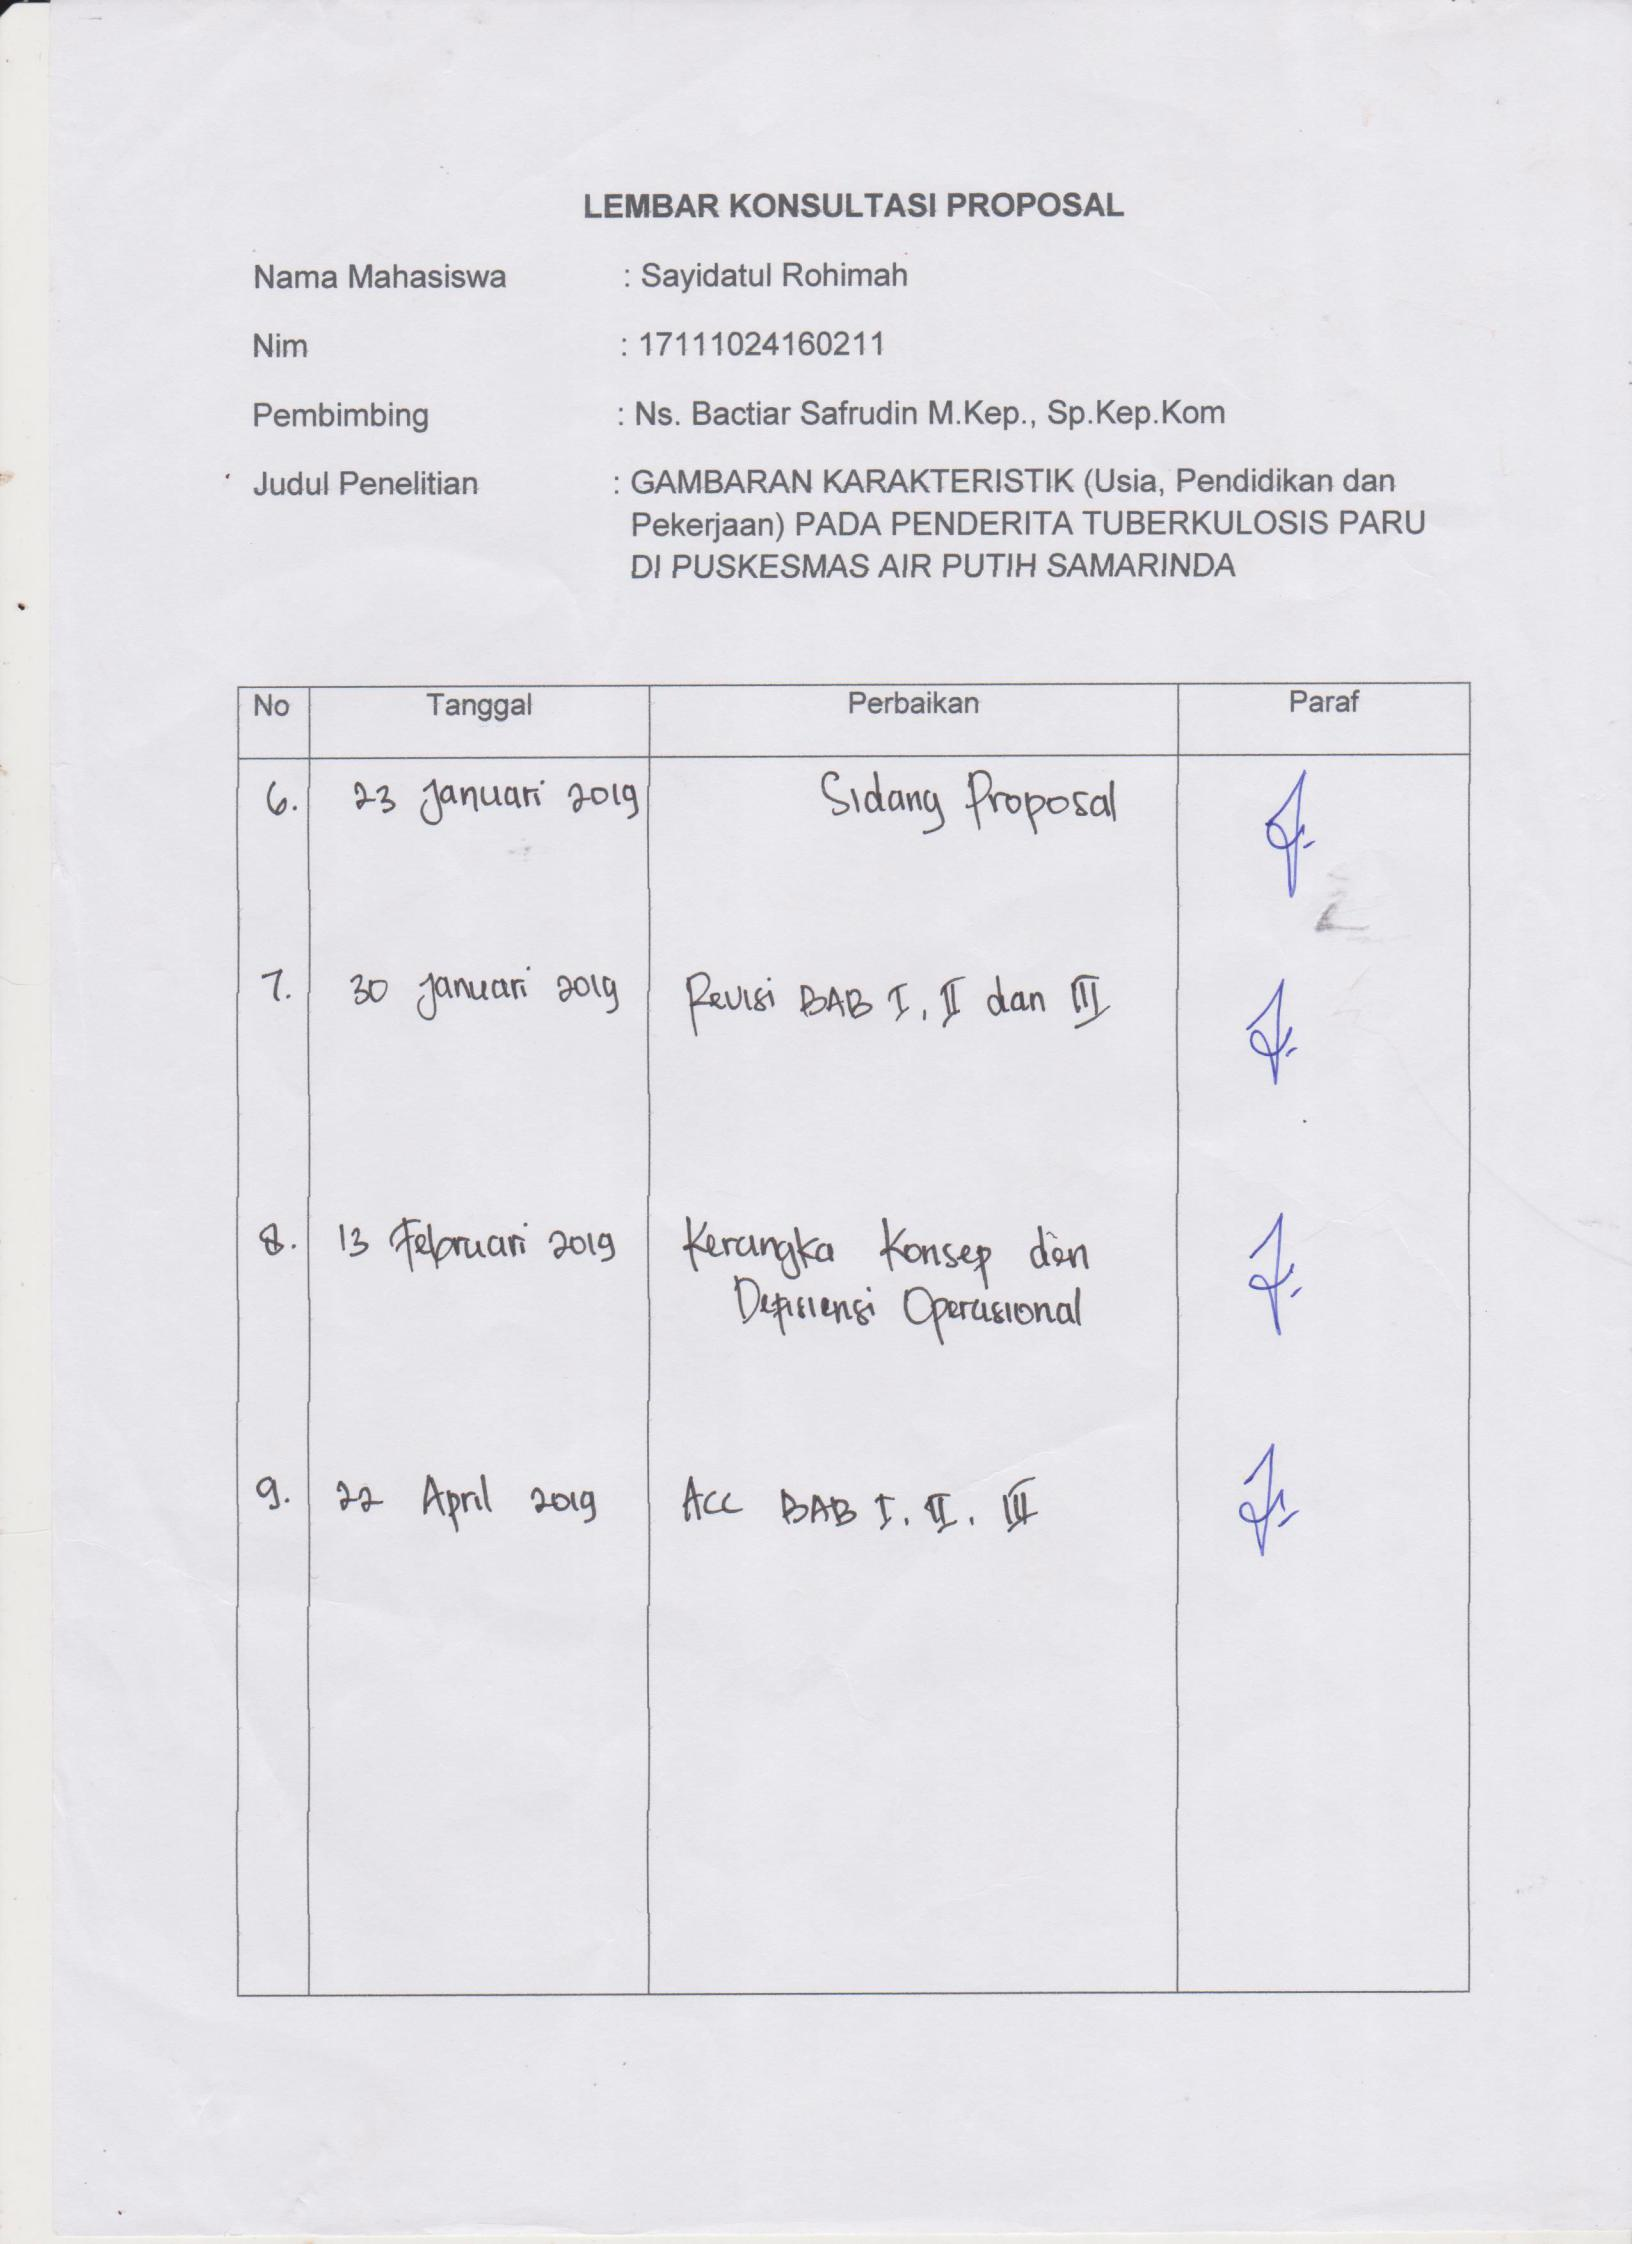 LEMBAR KONSULTASI PROPOSAL
Nama Mahasiswa : Sayidatul Rohimah
Nim : 17111024160211
Pembimbing : Ns. Bactiar Safrudin M.Kep., Sp.Kep.Kom
Judul Penelitian : GAMBARAN KARAKTERISTIK (Usia, Pendidikan dan
Pekerjaan) PADA PENDERITA TUBERKULOSIS PARU
DI PUSKESMAS AIR PUTIH SAMARINDA
No Tanggal Perbaikan Paraf
6. 23 Januari 2019 Sidang Proposal
7. 30 Januari 2019 Revisi BAB I, II dan III
8. 13 Februari 2019 Kerangka Konsep dan
Defisiensi Operasional
9. 22 April 2019 Acc BAB I. II. III